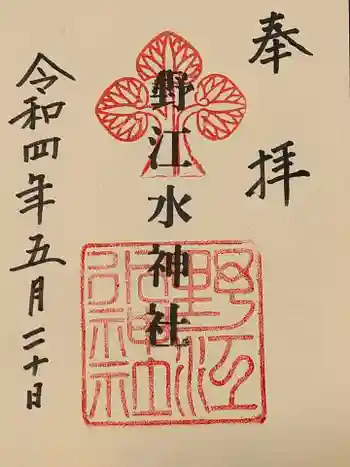 奉拝
野江水神社
野江水神社
令和四年五月二十日